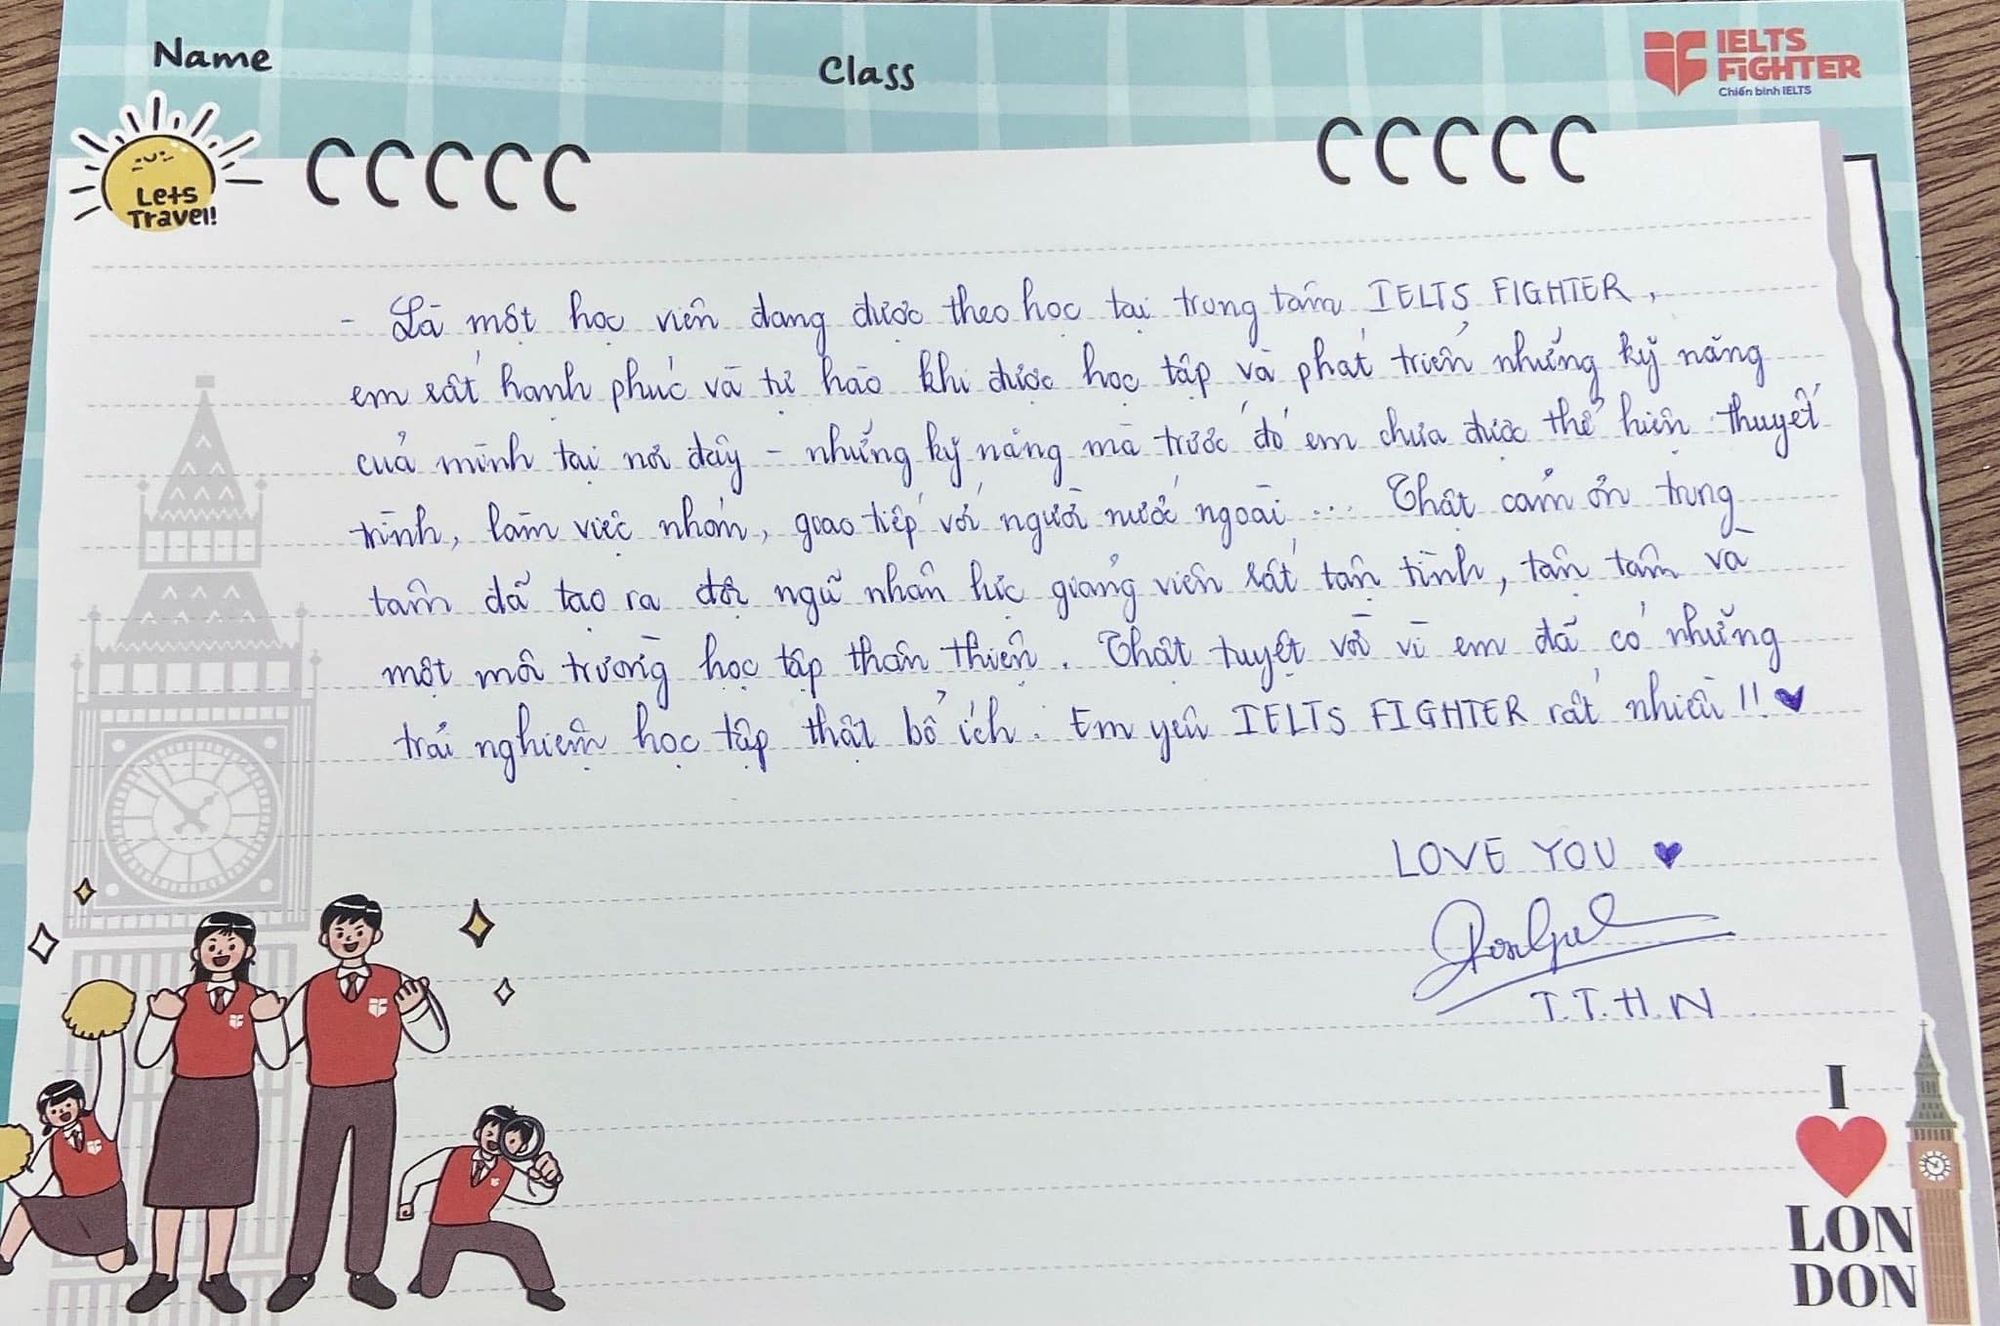 Name
Class
IELTS
FIGHTER
Chiến binh IELTS
Lets
Travel!
- Là một học viên đang được theo học tại trung tâm IELTS FIGHTER,
em rất hạnh phúc và tự hào khi được học tập và phát triển những kỹ năng
của mình tại nơi đây - những kỹ năng mà trước đó em chưa được thể hiện: thuyết
trình, làm việc nhóm, giao tiếp với người nước ngoài ... Thật cảm ơn trung
tâm đã tạo ra đội ngũ nhân lực giảng viên rất tận tình, tận tâm và
một môi trường học tập thân thiện. Thật tuyệt vời vì em đã có những
trải nghiệm học tập thật bổ ích. Em yêu IELTS FIGHTER rất nhiều!! ♥
LOVE YOU ♥
T.T.H.N
I
LON
DON